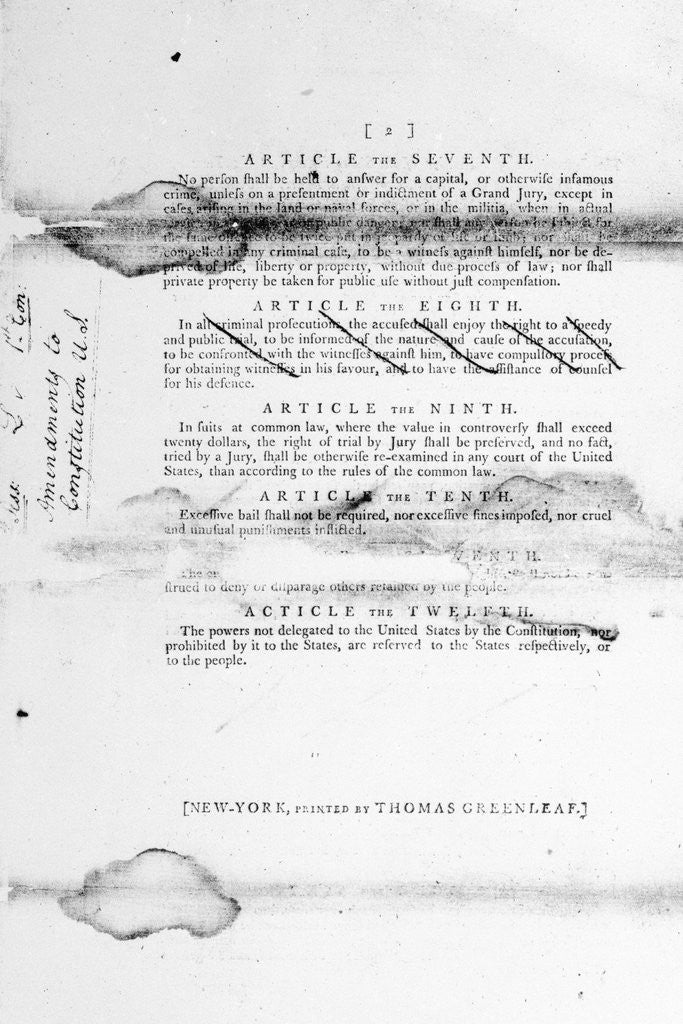 [ 2 ]
ARTICLE THE SEVENTH.
No perſon ſhall be held to anſwer for a capital, or otherwiſe infamous
crime, unleſs on a preſentment or indictment of a Grand Jury, except in
caſes ariſing in the land or naval forces, or in the militia, when in actual
public danger; nor ſhall any
the ſame to be twice put in jeopardy of life or limb; nor ſhall be
compelled in any criminal caſe, to be a witneſs againſt himſelf, nor be de-
prived of life, liberty or property, without due proceſs of law; nor ſhall
private property be taken for public uſe without juſt compenſation.
ARTICLE THE EIGHTH.
In all criminal proſecutions, the accuſed ſhall enjoy the right to a ſpeedy
and public trial, to be informed of the nature and cauſe of the accuſation,
to be confronted with the witneſſes againſt him, to have compulſory proceſs
for obtaining witneſſes in his favour, and to have the aſſiſtance of counſel
for his defence.
ARTICLE THE NINTH.
In ſuits at common law, where the value in controverſy ſhall exceed
twenty dollars, the right of trial by Jury ſhall be preſerved, and no fact,
tried by a Jury, ſhall be otherwiſe re-examined in any court of the United
States, than according to the rules of the common law.
ARTICLE THE TENTH.
Exceſſive bail ſhall not be required, nor exceſſive fines impoſed, nor cruel
and unuſual puniſhments inflicted.
VENTH.
ſtrued to deny or diſparage others retained by the people.
ACTICLE THE TWELFTH.
The powers not delegated to the United States by the Conſtitution, nor
prohibited by it to the States, are reſerved to the States reſpectively, or
to the people.
[NEW-YORK, PRINTED BY THOMAS GREENLEAF.]
1st Con:
Amendments to
Conſtitution U.S.